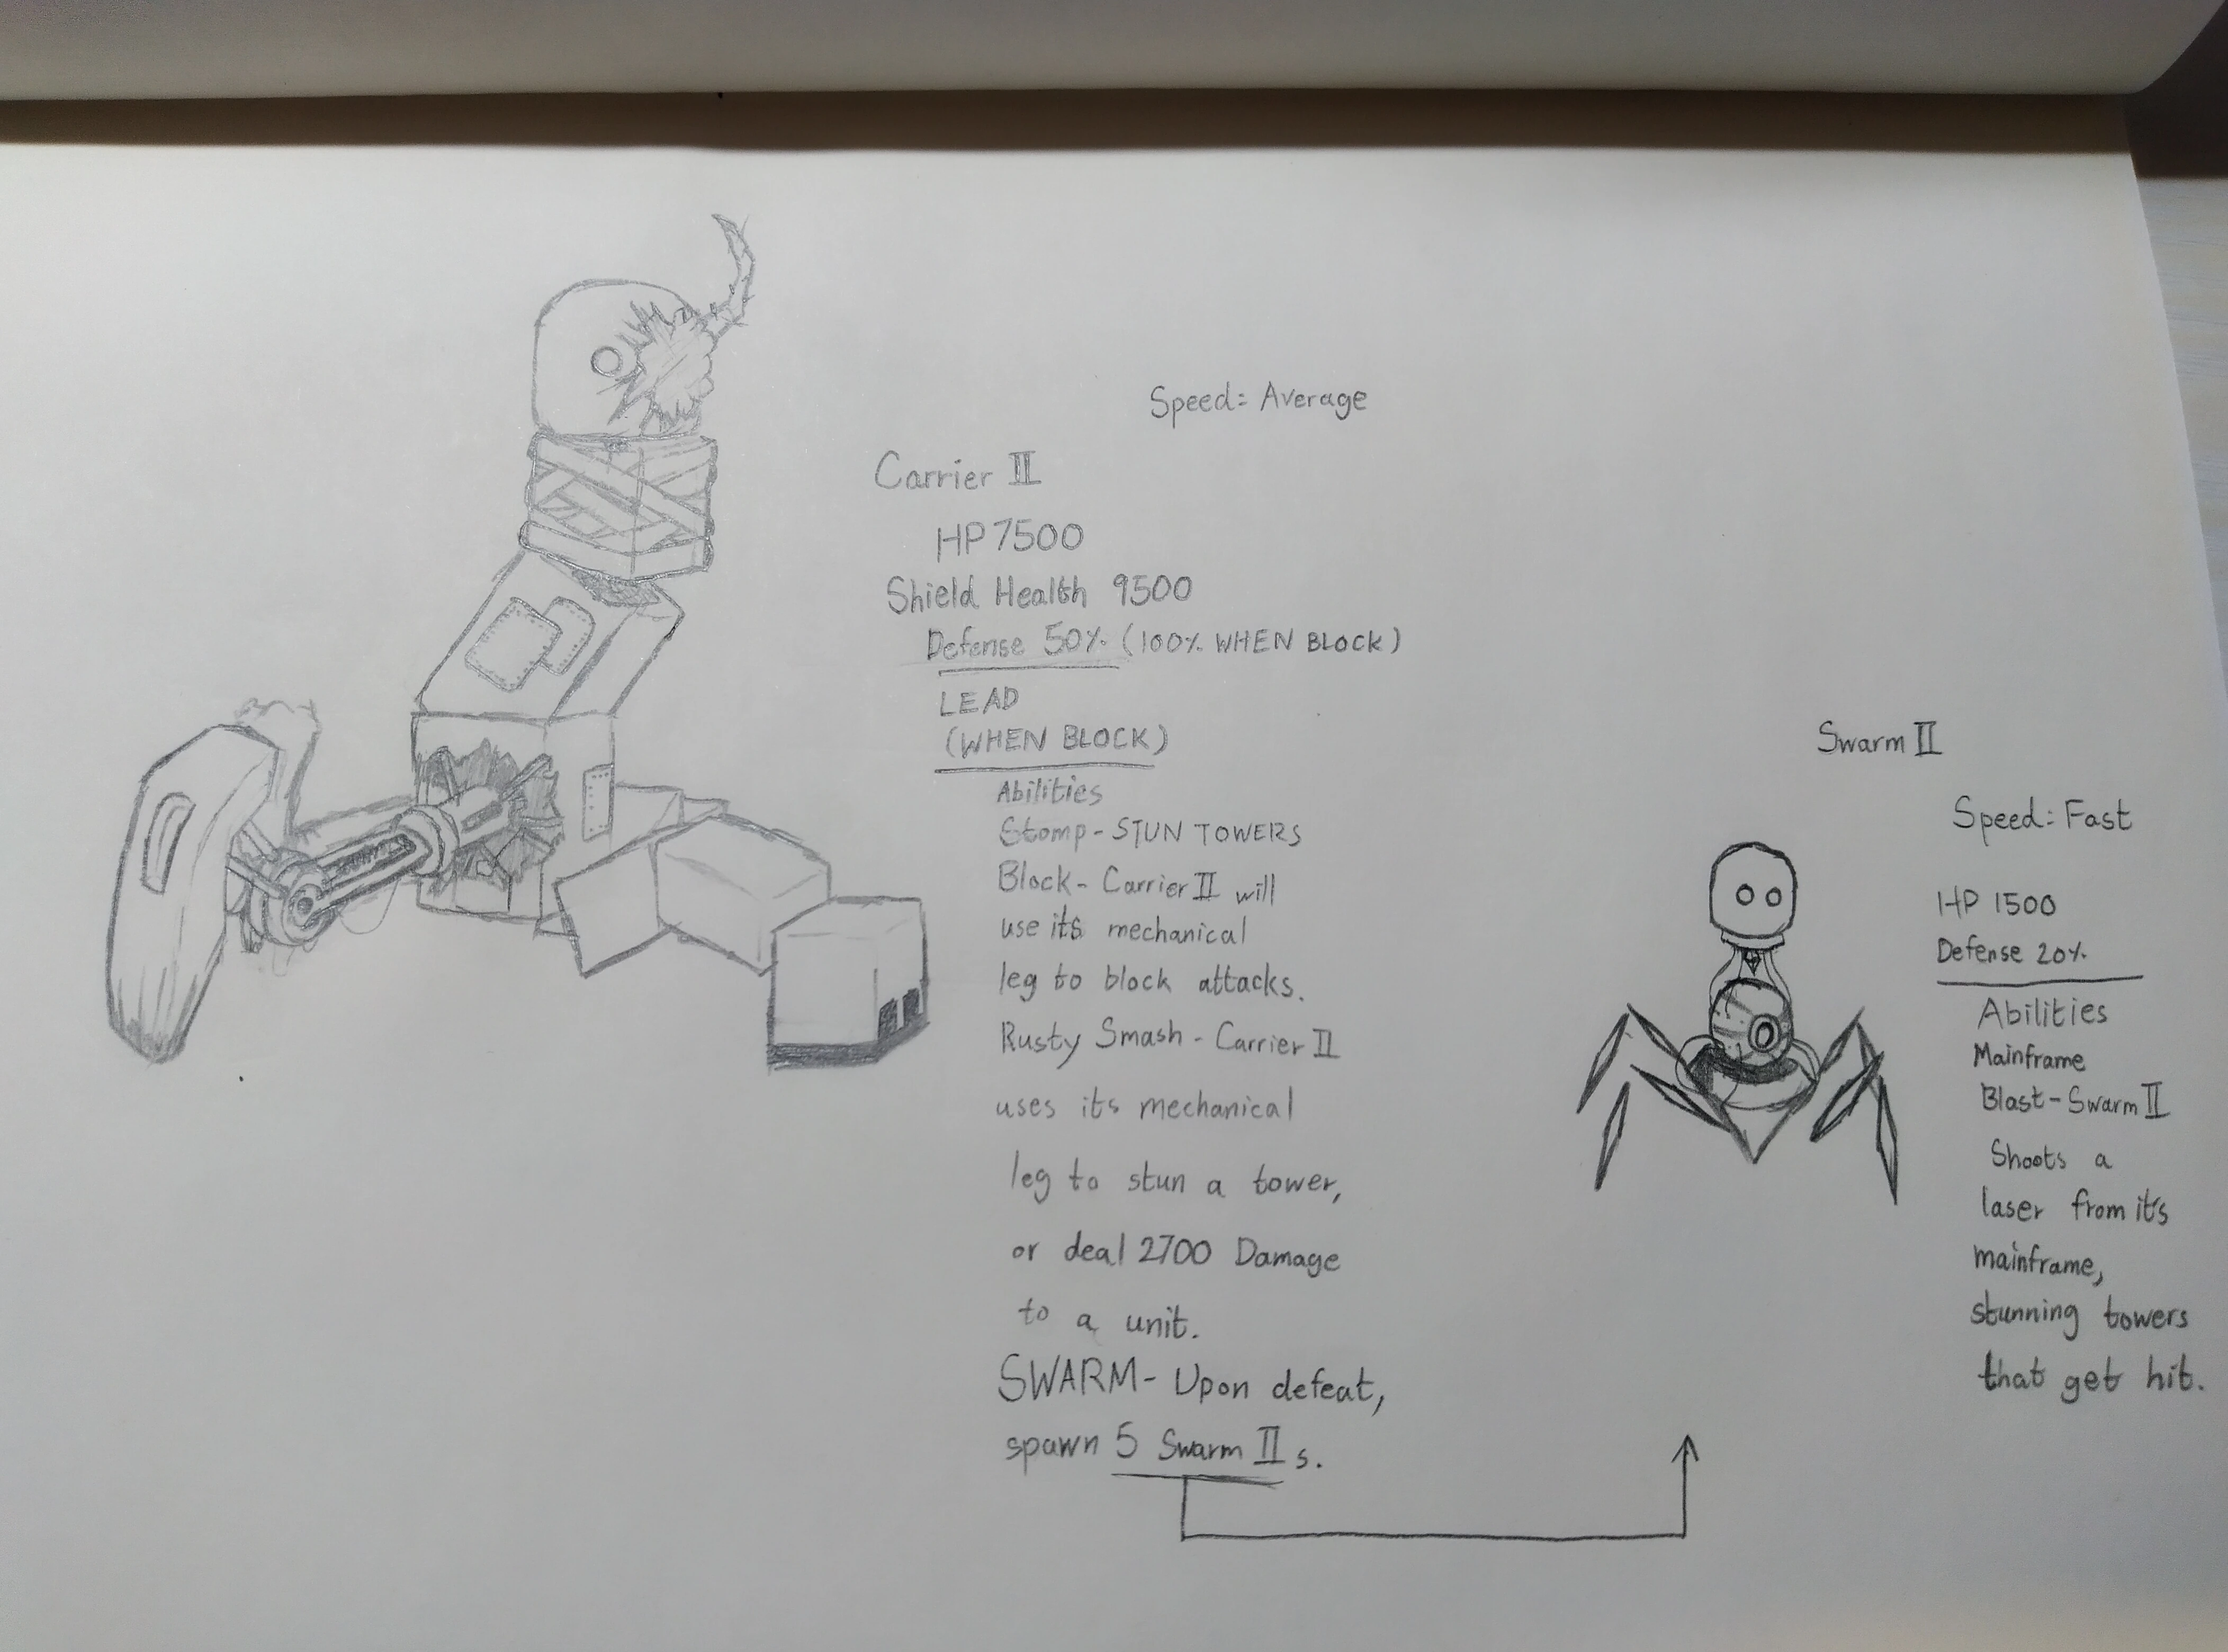 Speed: Average
Carrier II
HP 7500
Shield Health 9500
Defense 50% (100% WHEN BLOCK)
LEAD
(WHEN BLOCK)
Abilities
Stomp - STUN TOWERS
Block - Carrier II will
use its mechanical
leg to block attacks.
Rusty Smash - Carrier II
uses its mechanical
leg to stun a tower,
or deal 2700 Damage
to a unit.
SWARM - Upon defeat,
spawn 5 Swarm II s.
Swarm II
Speed: Fast
HP 1500
Defense 20%
Abilities
Mainframe
Blast - Swarm II
Shoots a
laser from it's
mainframe,
stunning towers
that get hit.